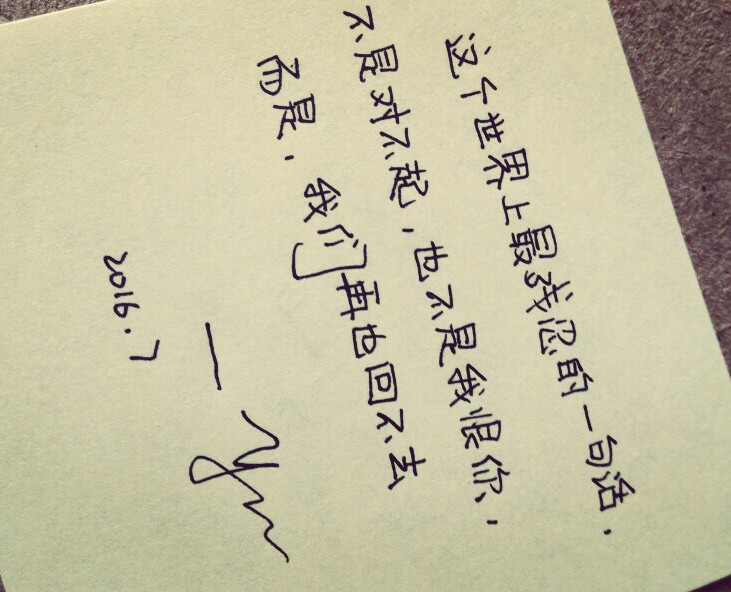 这个世界上最残忍的一句话，
不是对不起，也不是我恨你，
而是，我们再也回不去
2016.7